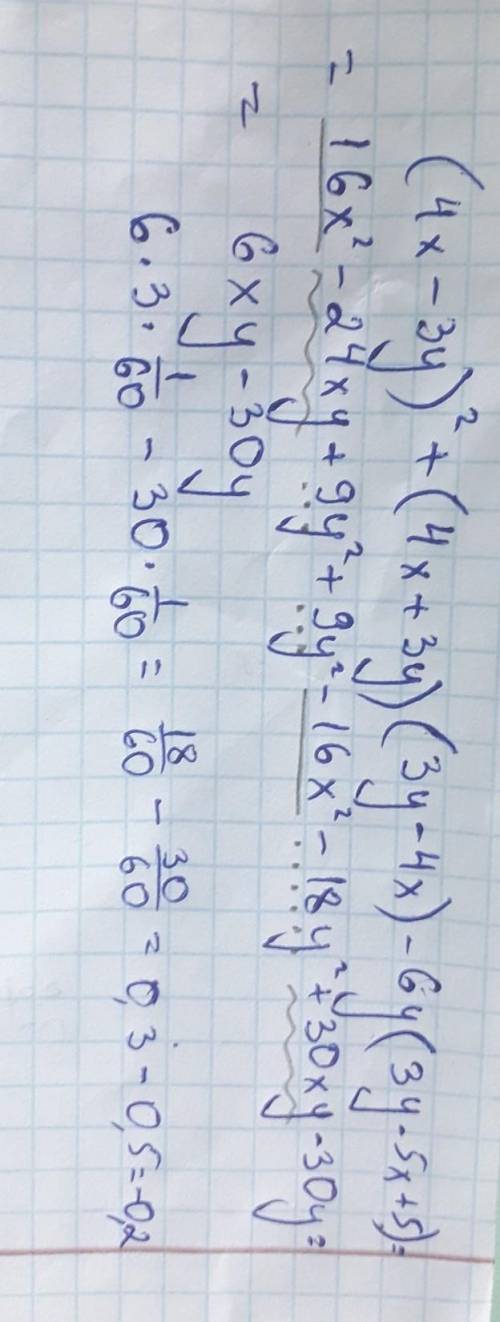 (4x - 3y)² + (4x + 3y)(3y - 4x) - 6y(3y - 5x + 5) =
= 16x² - 24xy + 9y² + 9y² - 16x² - 18y² + 30xy - 30y =
= 6xy - 30y
6 · 3 · 1/60 - 30 · 1/60 = 18/60 - 30/60 = 0,3 - 0,5 = -0,2